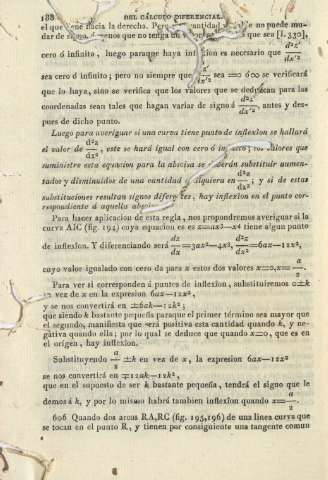 188 DEL CÁLCULO DIFERENCIAL.
el que tiene hácia la derecha. Pero cantidad no puede mu-
dar de signo, menos que no tenga que sea [I. 330],
cero ó infinito, luego paraque haya inflexion es necesario que d²z'/dx'²
sea cero ó infinito; pero no siempre que sea =0 ó ∞ se verificará
que lo haya, sino se verifica que los valores que se deduzcan para las
coordenadas sean tales que hagan variar de signo á d²z'/dx'², antes y des-
pues de dicho punto.
Luego para averiguar si una curva tiene punto de inflexîon se hallará
el valor de d²z/dx², este se hará igual con cero ó infinito; los valores que
suministre esta equacion para la abscisa se deberán substituir aumen-
tados y disminuidos de una cantidad qualquiera en d²z/dx²; y si de estas
substituciones resultan signos diferentes, hay inflexîon en el punto cor-
respondiente á aquella abscisa.
Para hacer aplicacion de esta regla, nos propondremos averiguar si la
curva AIC (fig. 194) cuya equacion es z=ax³-x⁴ tiene algun punto
de inflexîon. Y diferenciando será dz/dx=3ax²-4x³, d²z/dx²=6ax-12x²,
cuyo valor igualado con cero da para x estos dos valores x=0, x=a/2.
Para ver si corresponden á puntos de inflexîon, substituiremos 0±k
en vez de x en la expresion 6ax-12x²,
y se nos convertirá en ±6ak-12k²;
que siendo k bastante pequeña paraque el primer término sea mayor que
el segundo, manifiesta que será positiva esta cantidad quando k, y ne-
gativa quando ella; por lo qual se deduce que quando x=0, que es en
el orígen, hay inflexîon.
Substituyendo a/2 ±k en vez de x, la expresion 6ax-12x²
se nos convertirá en ∓12ak-12k²,
que en el supuesto de ser k bastante pequeña, tendrá el signo que le
demos á k, y por lo mismo habrá tambien inflexîon quando x=a/2.
606 Quando dos arcos RA,RC (fig. 195,196) de una línea curva que
se tocan en el punto R, y tienen por consiguiente una tangente comun